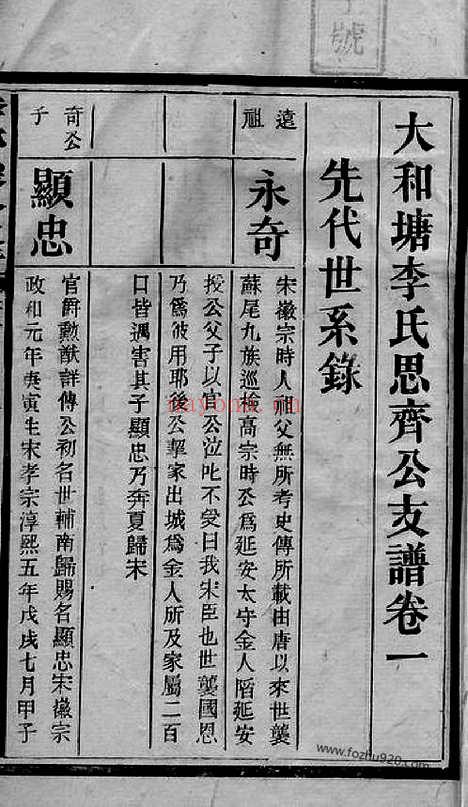 號
大和塘李氏思齊公支譜卷一
先代世系錄
遠祖
永奇
宋徽宗時人祖父無所考史傳所載由唐以來世襲
蘇尾九族巡檢高宗時公爲延安太守金人陷延安
授公父子以官公泣叱不受曰我宋臣也世襲國恩
乃爲彼用耶後公挈家出城爲金人所及家屬二百
口皆遇害其子顯忠乃奔夏歸宋
奇公子
顯忠
官爵勲猷詳傳公初名世輔南歸賜名顯忠宋徽宗
政和元年庚寅生宋孝宗淳熙五年戊戌七月甲子
nayona.cn
www.fozhu920.com